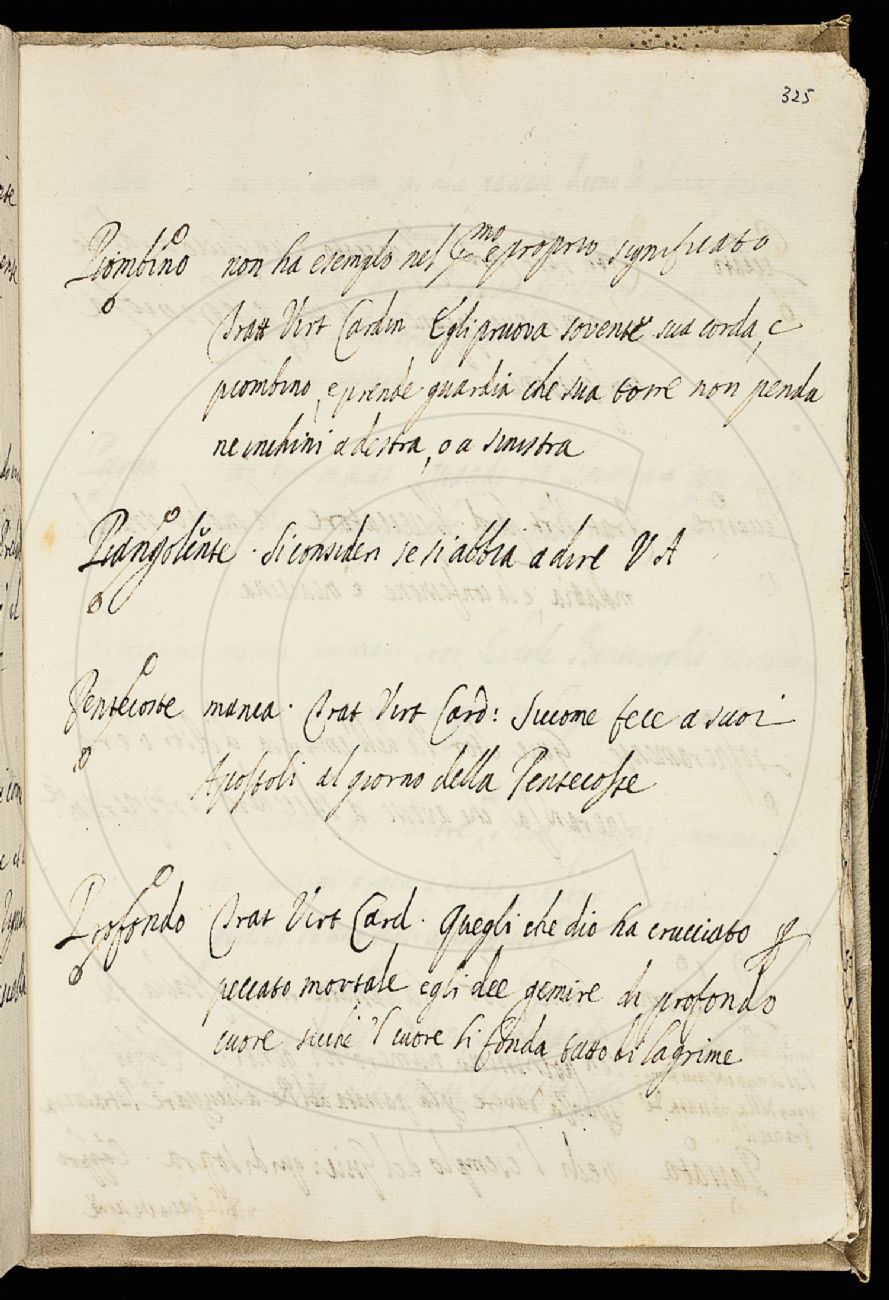 325
Piombino non ha esemplo nel p.mo e proprio significato
Tratt Virt Cardin Egli pruova sovente sua corda, e
piombino, e prende guardia che sua torre non penda
ne inchini a destra, o a sinistra
Piangolente. Si consideri se si abbia a dire V A
Pentecoste manca. Trat Virt Card: Siccome fece a suoi
Apostoli al giorno della Pentecoste
Profondo Trat Virt Card. Quegli che dio ha crucciato p
peccato mortale egli dee gemire di profondo
cuore sicche 'l cuore si fonda tutto di lagrime